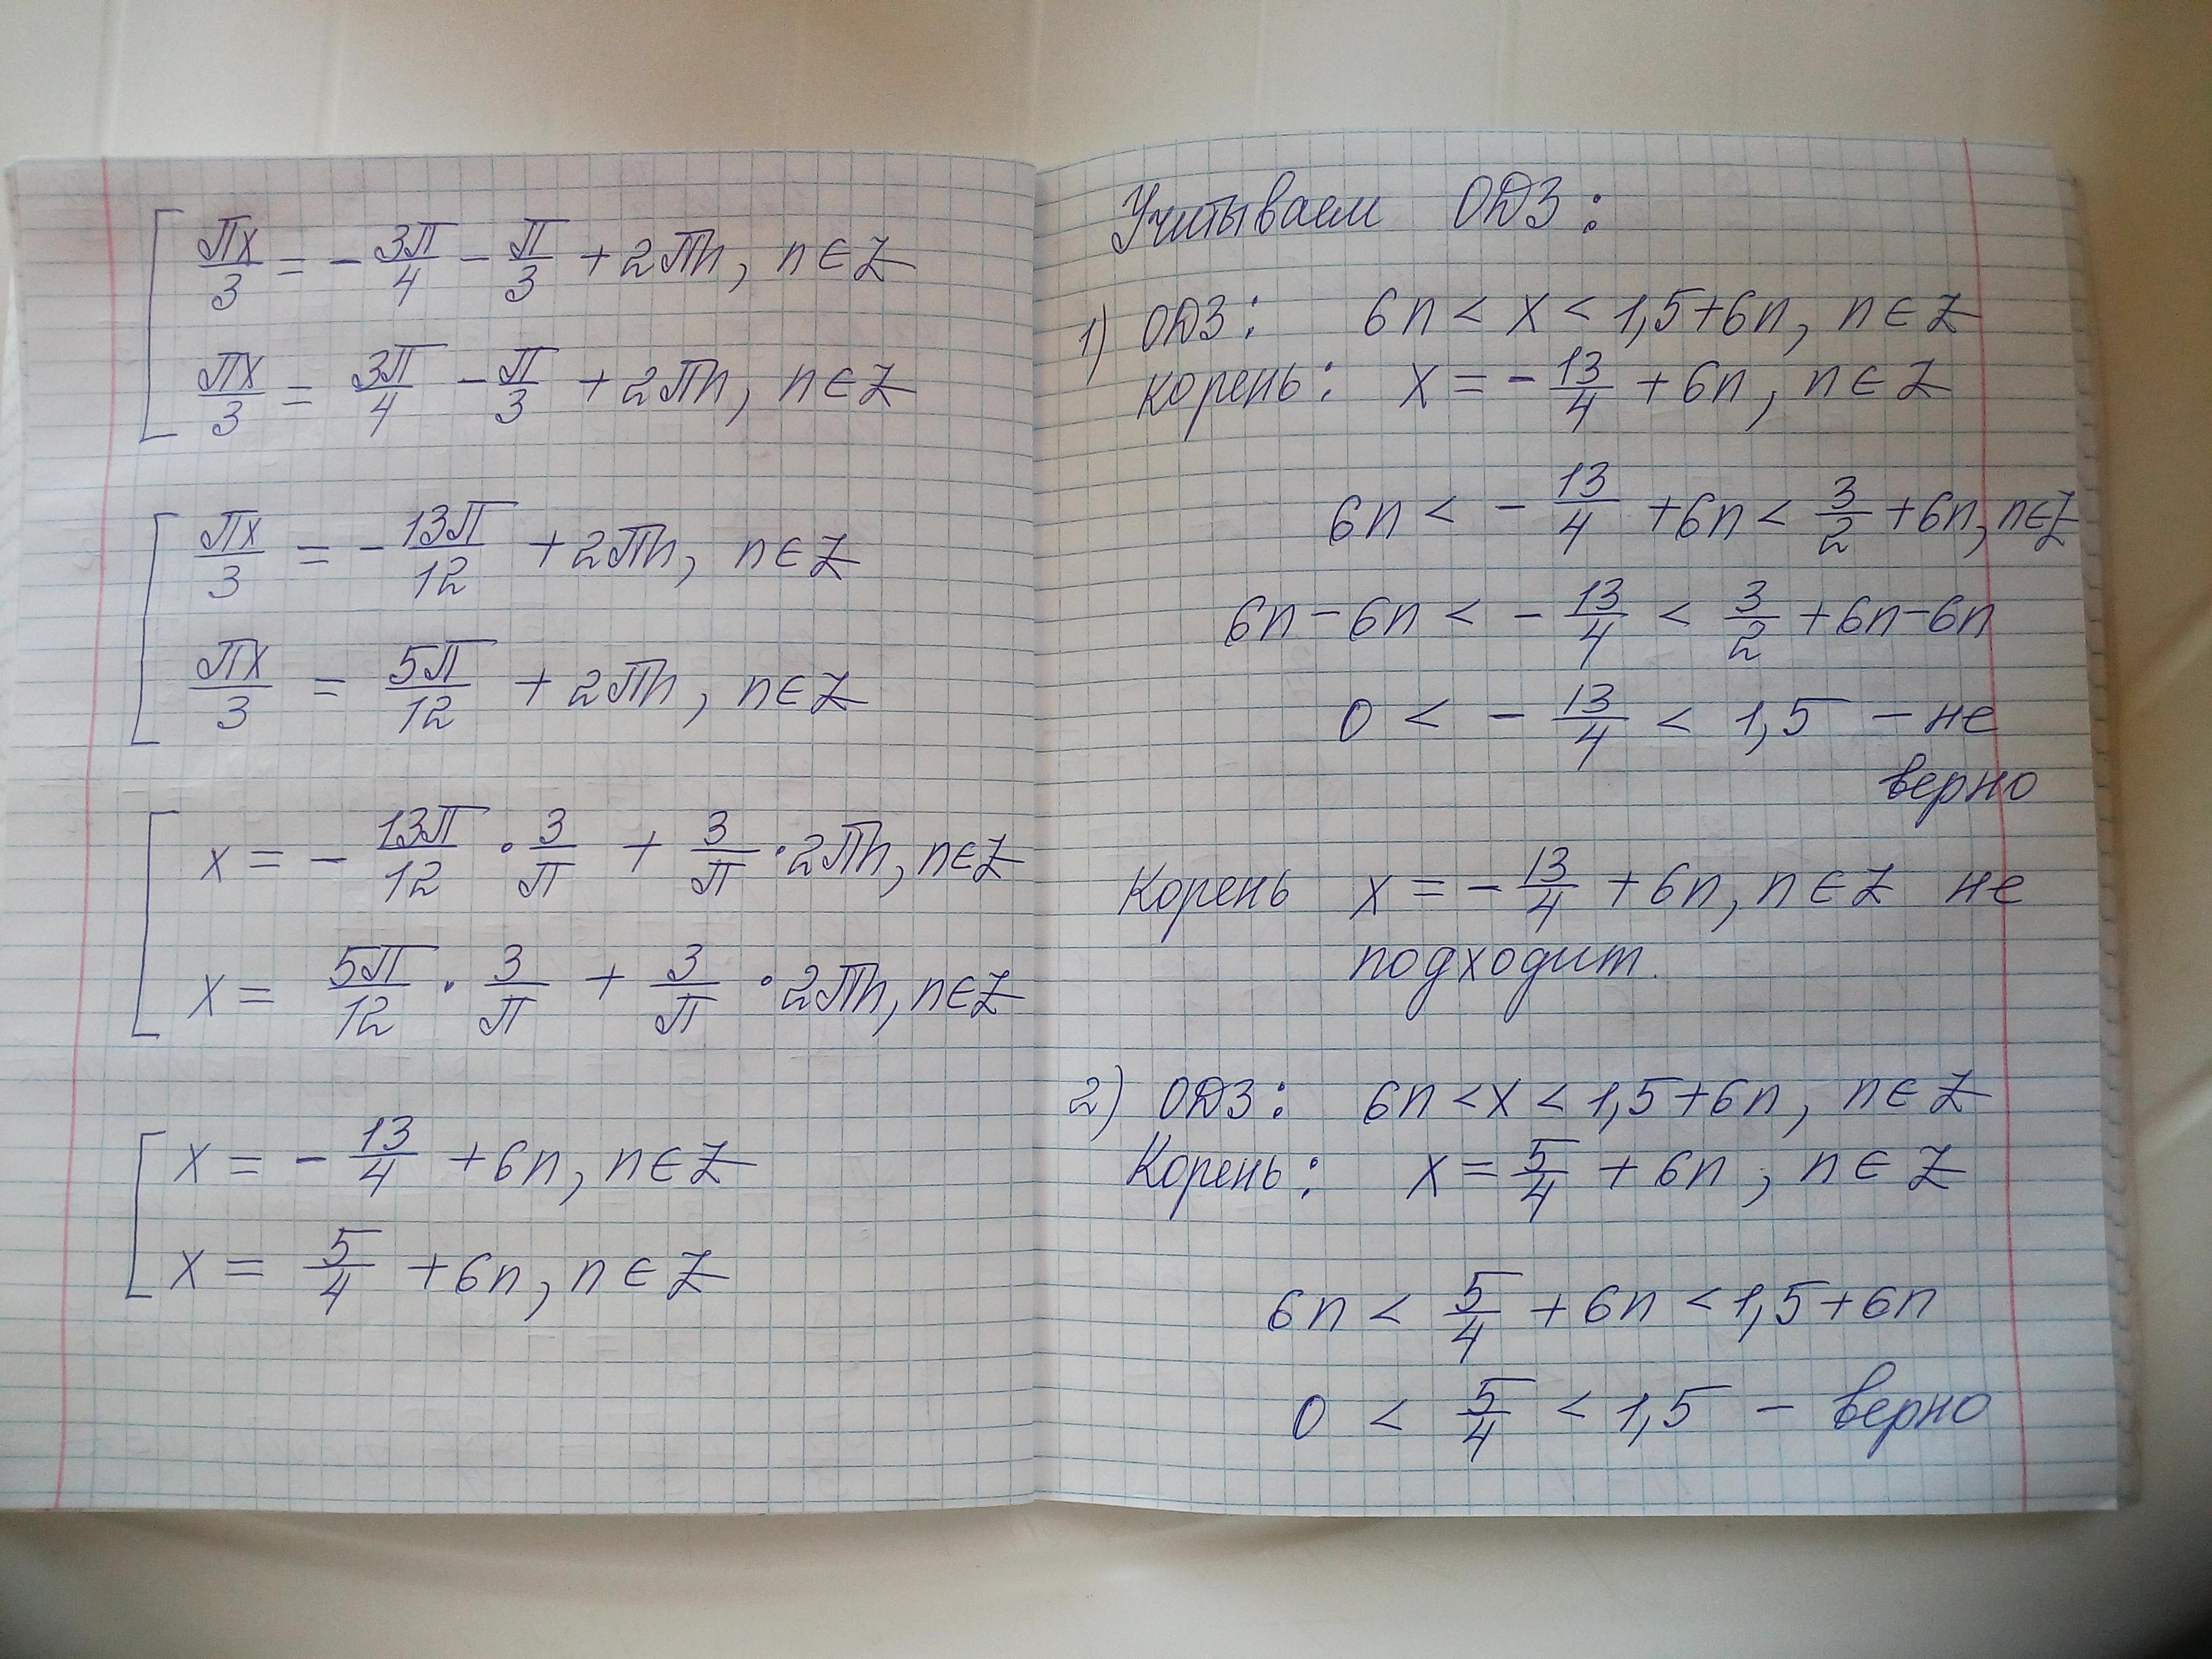 πx/3 = - 3π/4 - π/3 + 2πn, n∈Z
πx/3 = 3π/4 - π/3 + 2πn, n∈Z
πx/3 = - 13π/12 + 2πn, n∈Z
πx/3 = 5π/12 + 2πn, n∈Z
x = - 13π/12 · 3/π + 3/π · 2πn, n∈Z
x = 5π/12 · 3/π + 3/π · 2πn, n∈Z
x = - 13/4 + 6n, n∈Z
x = 5/4 + 6n, n∈Z
Учитываем ОДЗ:
1) ОДЗ: 6n < x < 1,5+6n, n∈Z
корень: x = - 13/4 + 6n, n∈Z
6n < - 13/4 + 6n < 3/2 + 6n, n∈Z
6n - 6n < - 13/4 < 3/2 + 6n - 6n
0 < - 13/4 < 1,5 - не
верно
Корень x = - 13/4 + 6n, n∈Z не
подходит.
2) ОДЗ: 6n < x < 1,5+6n, n∈Z
Корень: x = 5/4 + 6n, n∈Z
6n < 5/4 + 6n < 1,5+6n
0 < 5/4 < 1,5 - верно